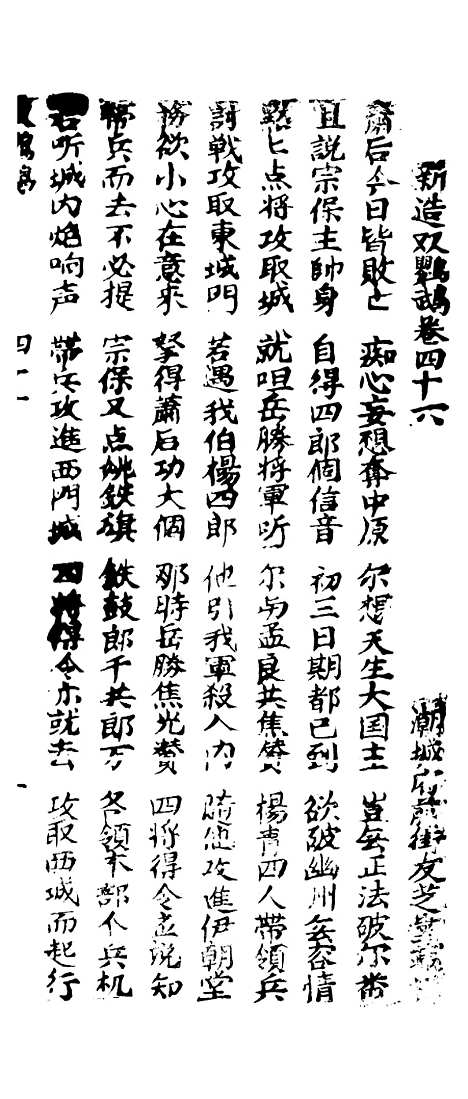 新造双鹦鵡卷四十六 潮城府前街友芝堂
后今日皆敗亡 痴心妄想奪中原 尔想天生大国主 豈無正法破尔番
且說宗保主帥身 自得四郎個信音 初三日期都已到 欲破幽州無容情
點匕点将攻取城 就呾岳勝將軍听 尔与孟良共焦贊 楊青四人帶領兵
討戰攻取東城門 若遇我伯楊四郎 他引我軍殺入内 隨他攻進伊朝堂
務欲小心在意來 拏得蕭后功大個 那時岳勝焦光贊 四將得令盡說知
帶兵而去不必提 宗保又点姚鉄旗 鉄鼓郎千共郎万 各領本部个兵机
若听城内炮响声 帶兵攻進西門城 四將得令亦就去 攻取西城而起行
双鹦鵡 四 一